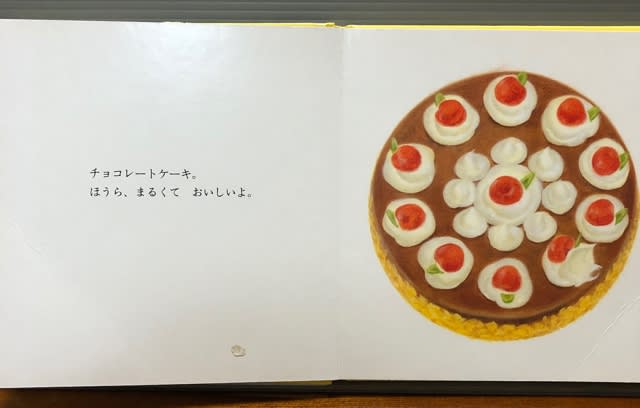 チョコレートケーキ。
ほうら、まるくて　おいしいよ。